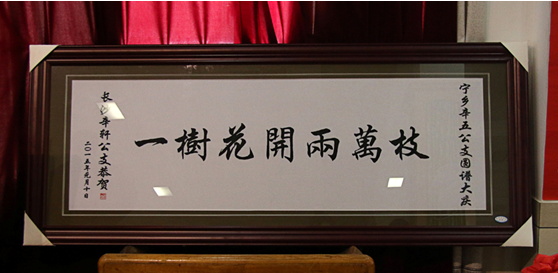 宁乡辛五公支圆谱大庆
一樹花開兩萬枝
长沙辛轩公支恭贺
二〇一五年元月十日